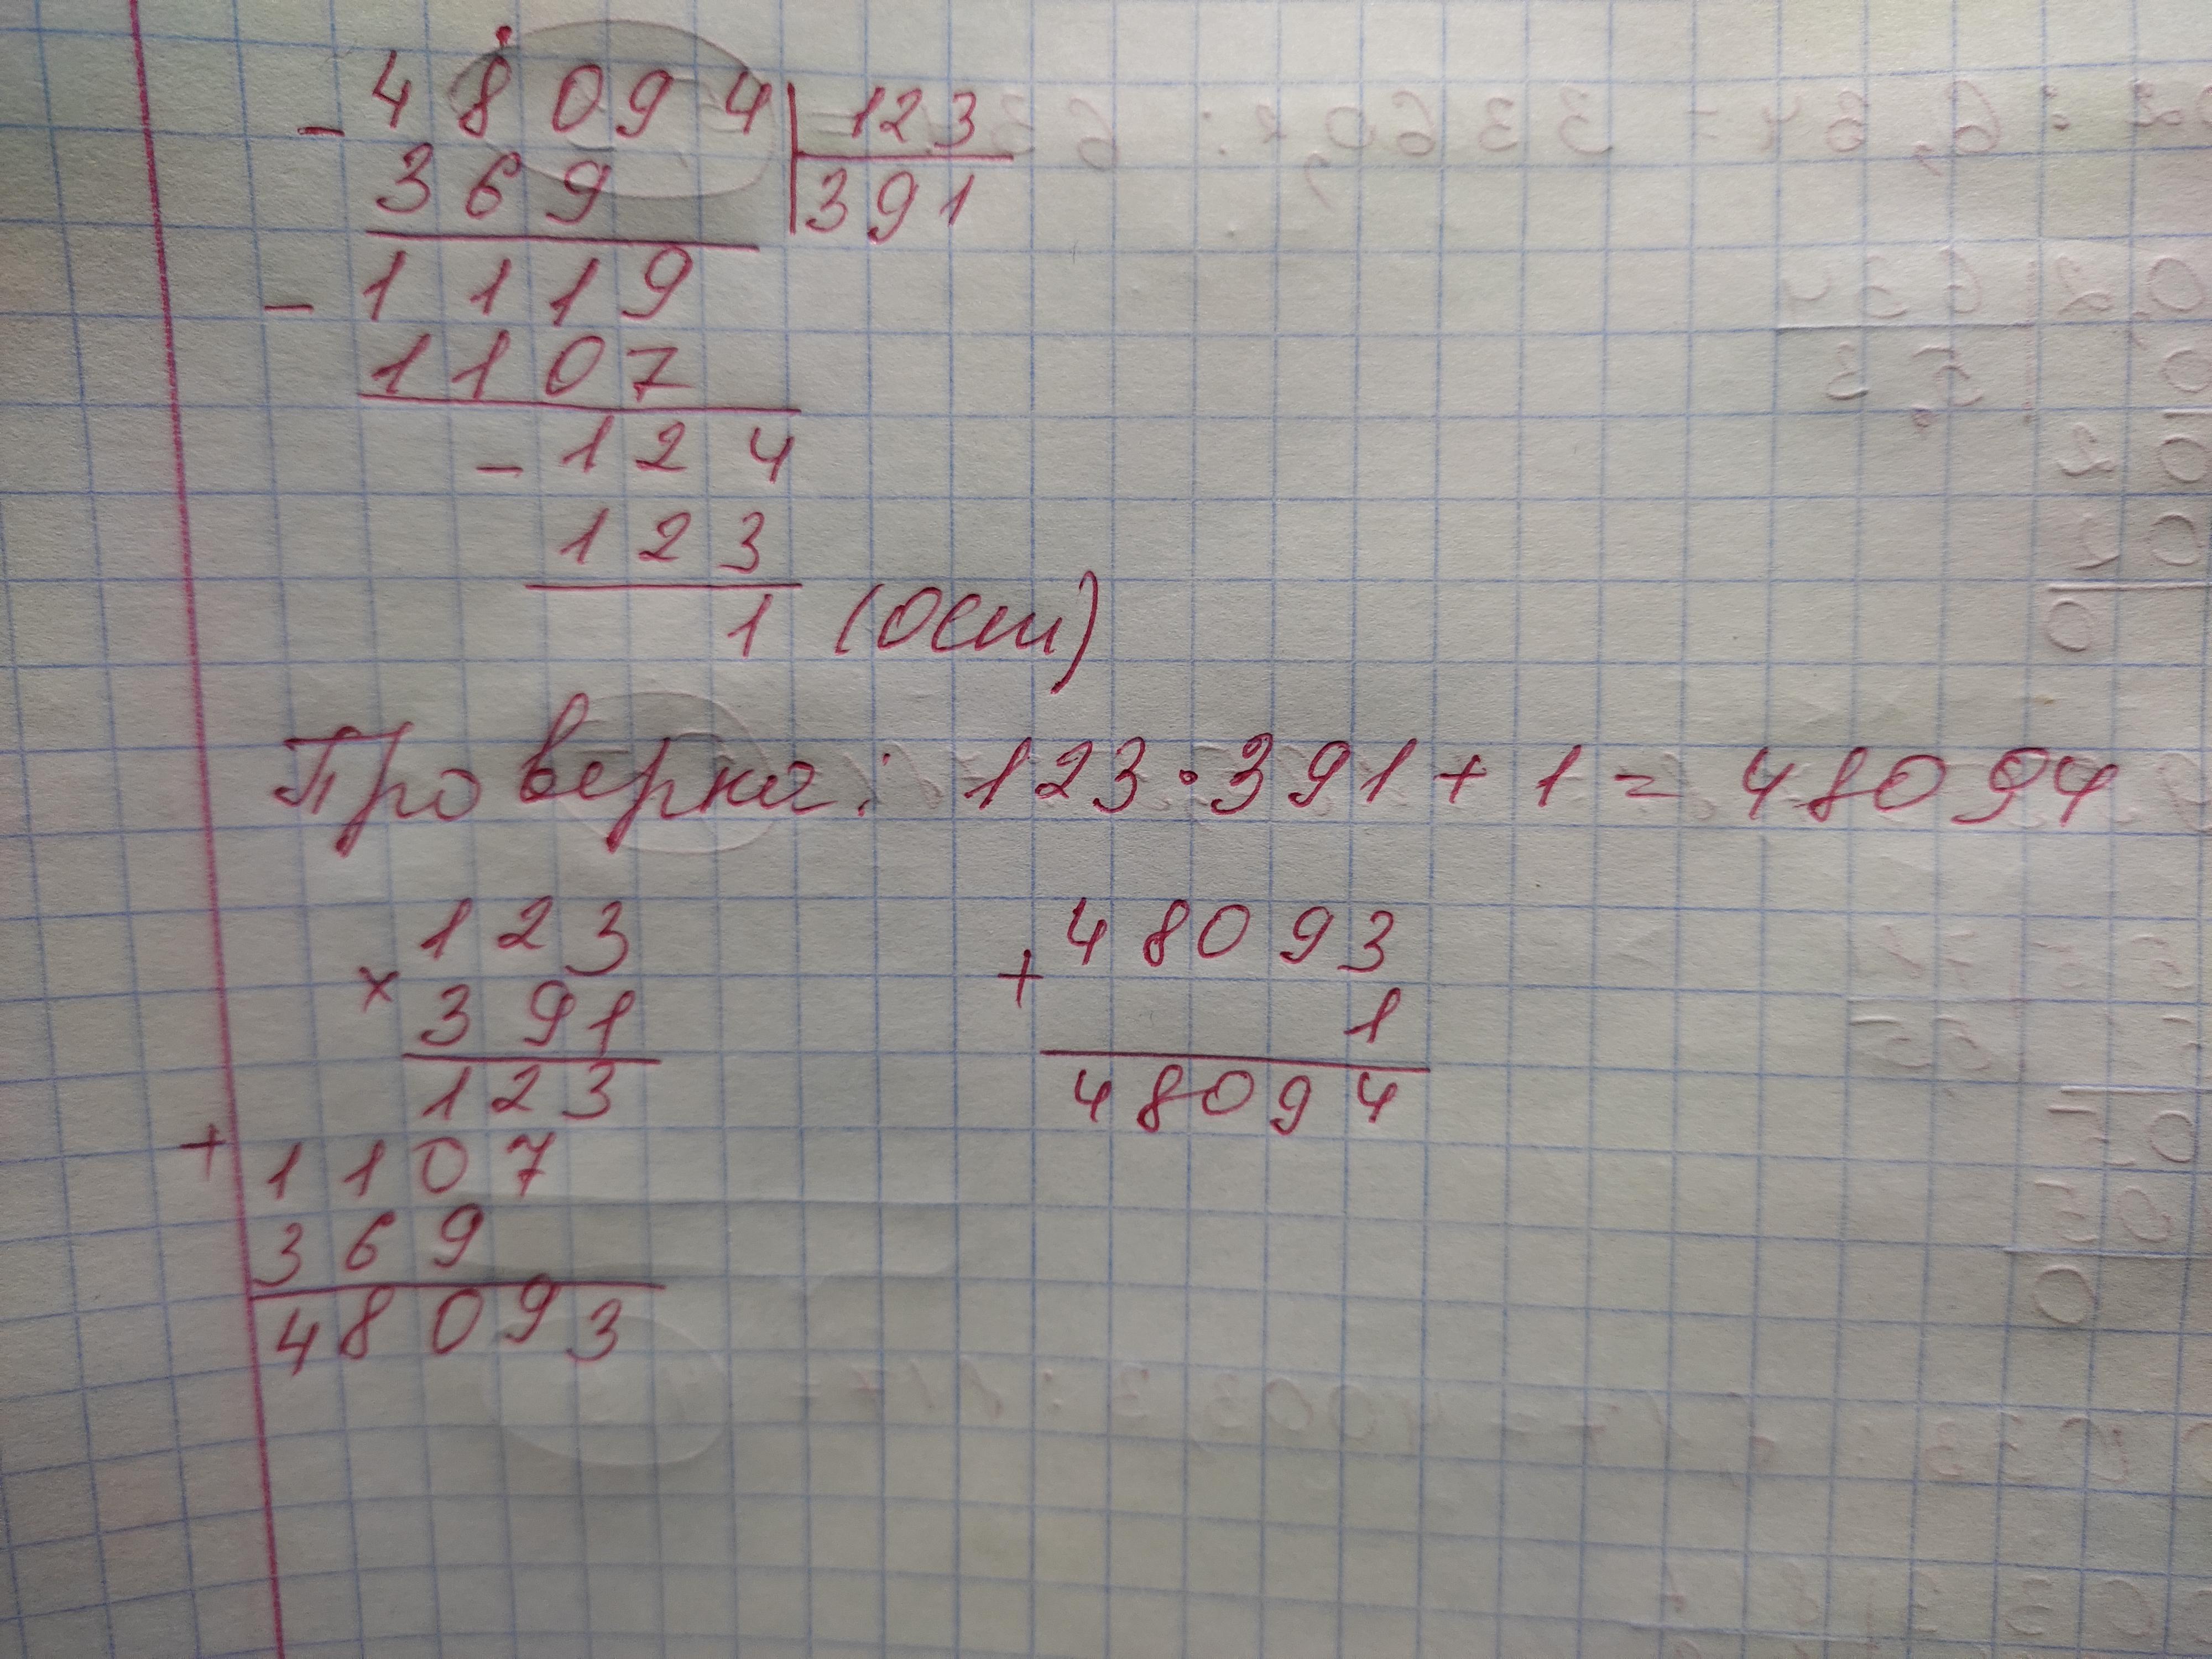 - 48094 | 123
369 | 391
- 1119
1107
- 124
123
1 (ост)
Проверка: 123 · 391 + 1 = 48094
123
× 391
123
+ 1107
369
48093
48093
+ 1
48094